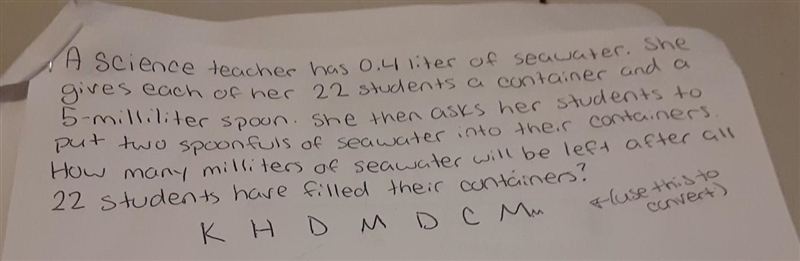 A Science teacher has 0.4 liter of seawater. She
gives each of her 22 students a container and a
5-milliliter spoon. She then asks her students to
put two spoonfuls of seawater into their containers.
How many milliters of seawater will be left after all
22 students have filled their containers?
K H D M D C Mm
←(use this to
convert)